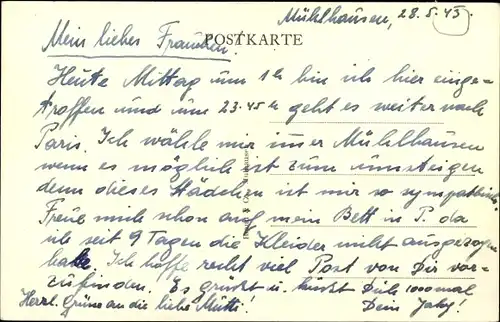 Mühlhausen, 28.5.43.
POSTKARTE
Mein liebes Frauchen.
Heute Mittag um 1h bin ich hier einge-
troffen und um 23.45 h geht es weiter nach
Paris. Ich wähle mir immer Mühlhausen
wenn es möglich ist zum umsteigen
denn dieses Städchen ist mir so sympathisch.
Freue mich schon auf mein Bett in P. da
ich seit 9 Tagen die Kleider nicht ausgezogen
habe. Ich hoffe recht viel Post von Dir vor-
zufinden. Es grüßt u. küsst Dich 1000mal
Herzl. Grüße an die liebe Mutti! Dein